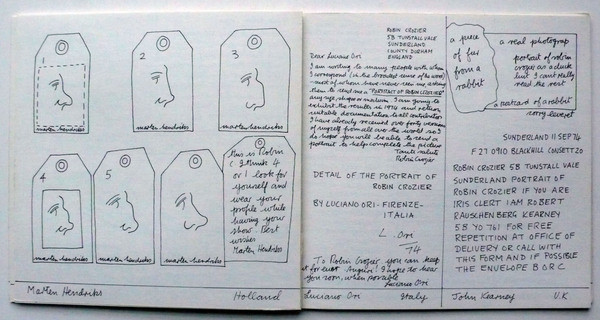 1
marten hendriks
2
marten hendriks
3
marten hendriks
4
marten hendriks
5
marten hendriks
marten hendriks
This is Robin
C. I think 4
or I look for
yourself and
wear your
profile while
having your
show. Best
wishes
Marten Hendriks
Marten Hendriks
Holland
ROBIN CROZIER
5B TUNSTALL VALE
SUNDERLAND
COUNTY DURHAM
ENGLAND
Dear Luciano Ori
I am writing to many people with whom
I correspond (in the broadest sense of the word)
most of whom have never seen me, asking
them to send me a "PORTRAIT OF ROBIN CROZIER"
any size, shape or medium. I am going to
exhibit the results in 1974 and return
suitable documentation to all contributors
I have already received over forty versions
of myself from all over the world so I
do hope you will be able to send a
portrait to help complete the picture
Robin Crozier
DETAIL OF THE PORTRAIT OF
ROBIN CROZIER
BY LUCIANO ORI-FIRENZE-
ITALIA
L. Ori
74
To Robin Crozier you can keep
it for ever. I hope to hear
you soon, when possible
Luciano Ori
Luciano Ori
Italy
a piece
of fur
from a
rabbit
a real photograp
portrait of robin
crozier as a duck
but I can't really
read the rest
a custard of a rabbit
sorry leveret
SUNDERLAND 11 SEP 74
F 27 0910 BLACKHILL CONSETT 20
ROBIN CROZIER 5B TUNSTALL VALE
SUNDERLAND PORTRAIT OF
ROBIN CROZIER IF YOU ARE
IRIS CLERT I AM ROBERT
RAUSCHENBERG KEARNEY
58 YO 761 FOR FREE
REPETITION AT OFFICE OF
DELIVERY OR CALL WITH
THIS FORM AND IF POSSIBLE
THE ENVELOPE B OR C
John Kearney
U.K